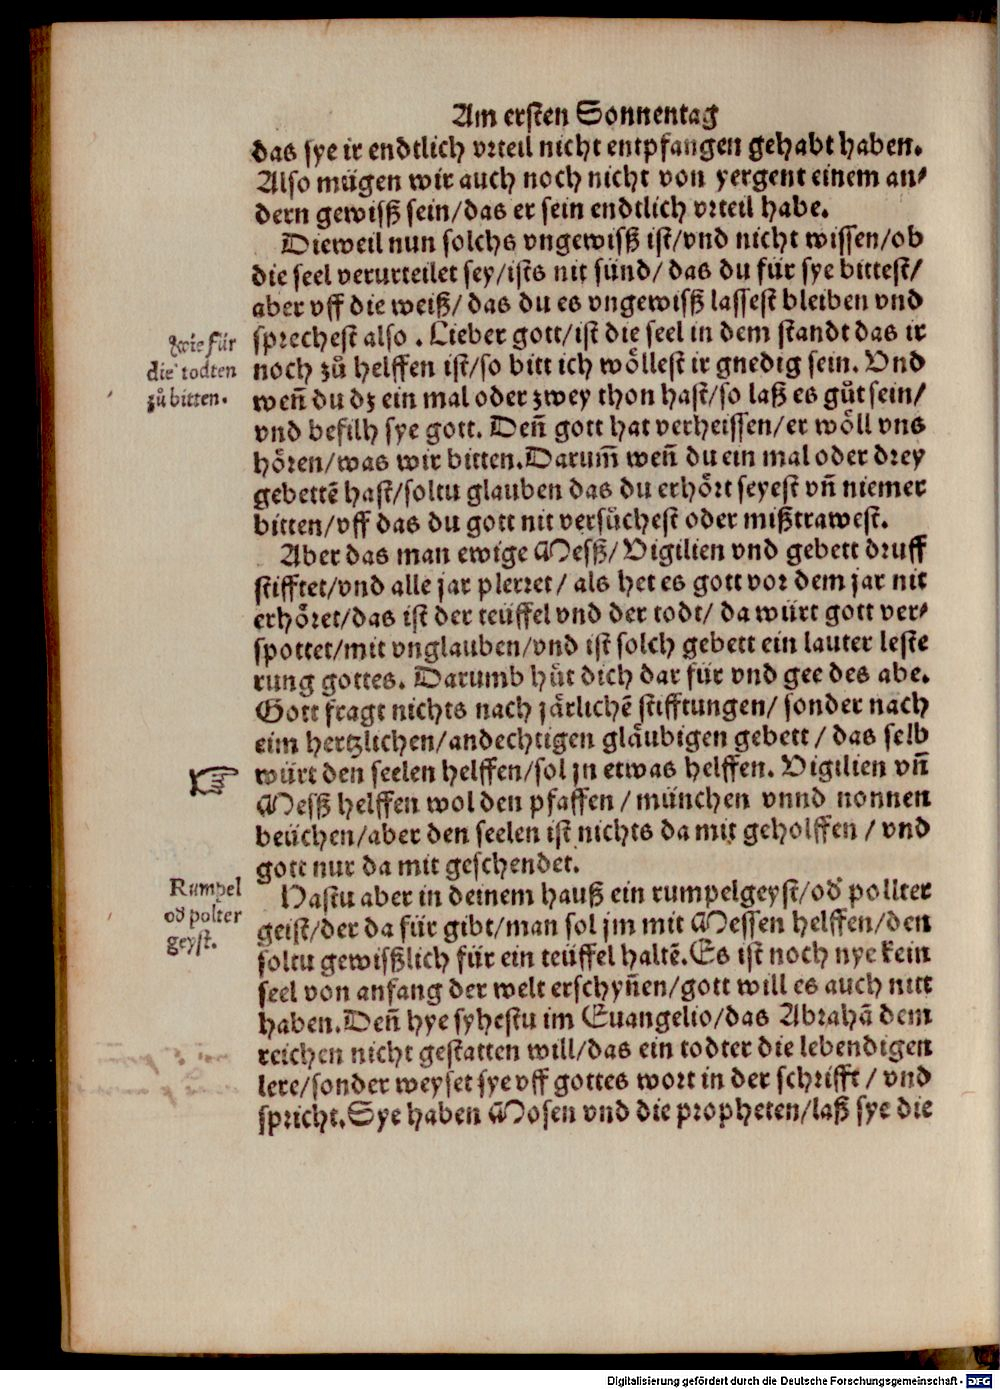 Am ersten Sonnentag
das sye ir endtlich vrteil nicht entpfangen gehabt haben.
Also mügen wir auch noch nicht von yergent einem an⸗
dern gewisß sein/das er sein endtlich vrteil habe.
Dieweil nun solchs vngewisß ist/vnd nicht wissen/ob
die seel verurteilet sey/ists nit sünd/ das du für sye bittest/
aber vff die weiß/ das du es vngewisß lassest bleiben vnd
sprechest also . Lieber gott/ist die seel in dem standt das ir
noch zů helffen ist/so bitt ich wöllest ir gnedig sein. Vnd
weñ du dz ein mal oder zwey thon hast/so laß es gůt sein/
vnd befilh sye gott. Deñ gott hat verheissen/er wöll vns
hören/was wir bitten.Darum̃ weñ du ein mal oder drey
gebettẽ hast/soltu glauben das du erhört seyest vñ niemer
bitten/vff das du gott nit versůchest oder mißtrawest.
Aber das man ewige Mesß/ Vigilien vnd gebett druff
stifftet/vnd alle jar plerret/ als het es gott vor dem jar nit
erhöret/das ist der teüffel vnd der todt/ da würt gott ver⸗
spottet/mit vnglauben/vnd ist solch gebett ein lauter leste
rung gottes. Darumb hůt dich dar für vnd gee des abe.
Gott fragt nichts nach järlichẽ stifftungen/ sonder nach
eim hertzlichen/andechtigen gläubigen gebett / das selb
würt den seelen helffen/sol jn etwas helffen. Vigilien vñ
Mesß helffen wol den pfaffen / münchen vnnd nonnen
beüchen/aber den seelen ist nichts da mit geholffen / vnd
gott nur da mit geschendet.
Hastu aber in deinem hauß ein rumpelgeyst/od̕ pollter
geist/der da für gibt/man sol jm mit Messen helffen/den
soltu gewisßlich für ein teüffel haltẽ.Es ist noch nye kein
seel von anfang der welt erschyñen/gott will es auch nitt
haben.Deñ hye syhestu im Euangelio/das Abrahã dem
reichen nicht gestatten will/das ein todter die lebendigen
lere/sonder weyset sye vff gottes wort in der schrifft / vnd
spricht.Sye haben Mosen vnd die propheten/laß sye die
wie für
die todten
zů bitten.
Rumpel
od̕ polter
geyst.
Digitalisierung gefördert durch die Deutsche Forschungsgemeinschaft - DFG